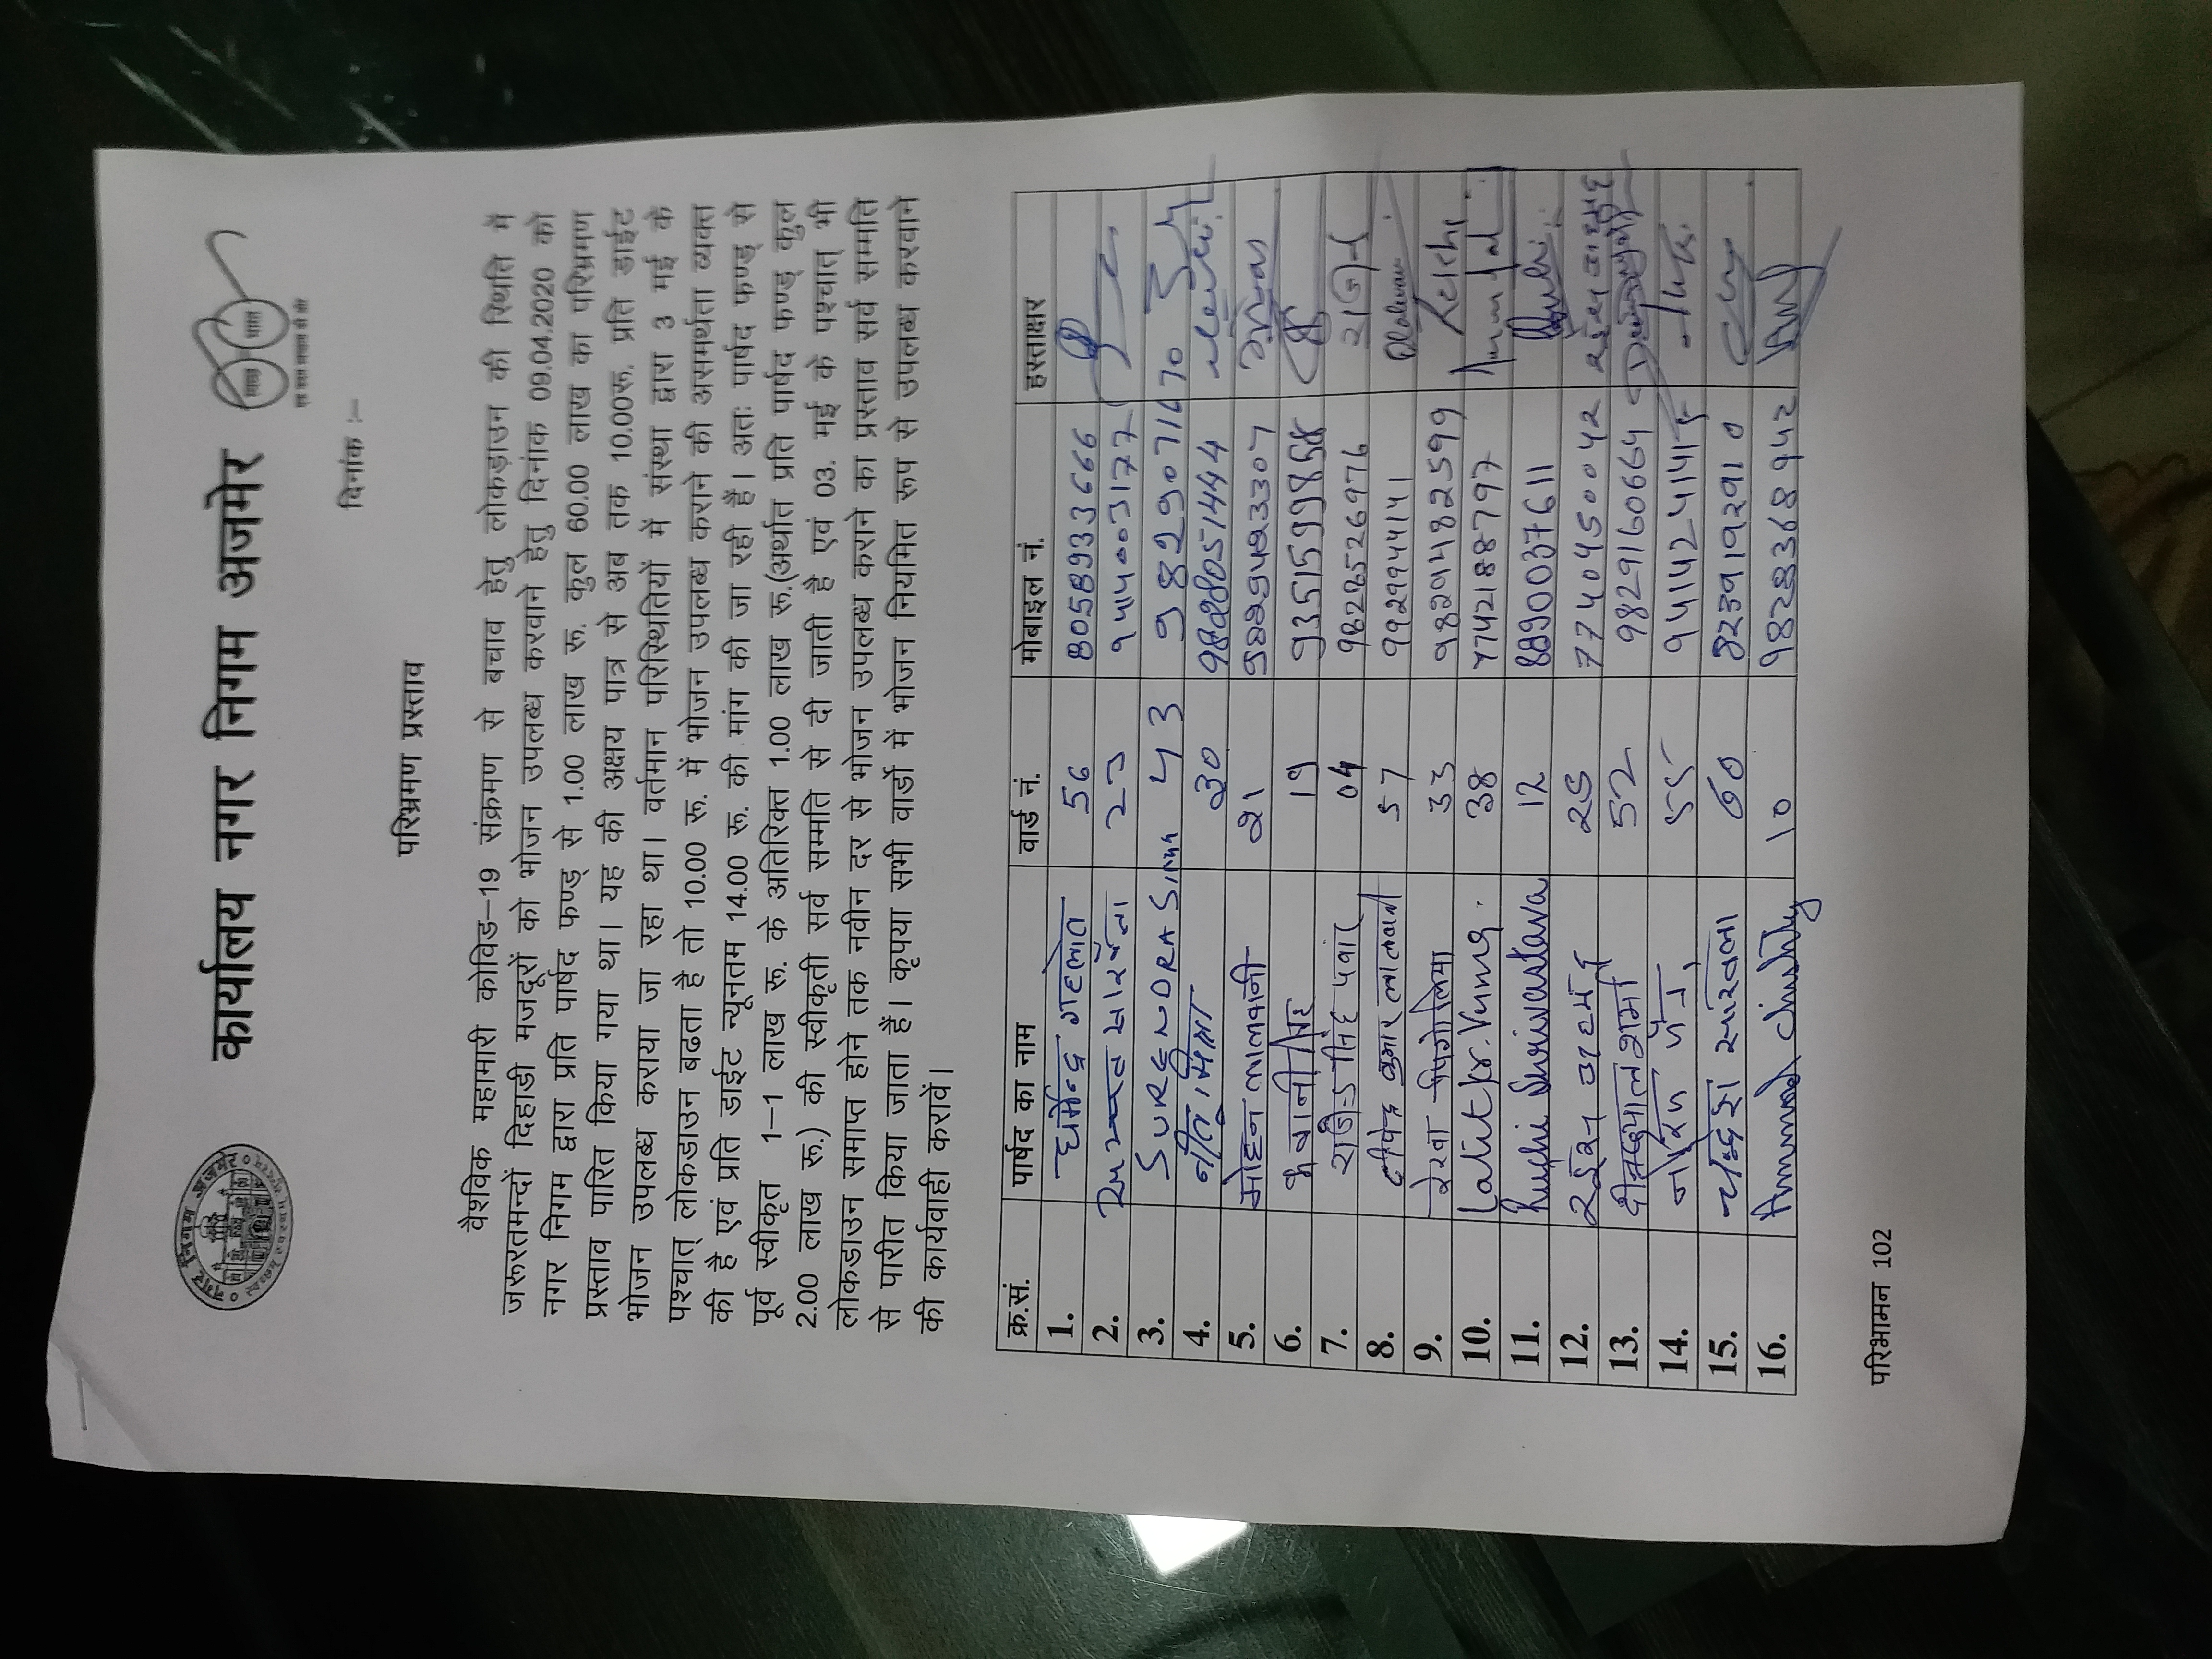 नगर निगम अजमेर
स्वच्छम् स्वस्थम् सुन्दरम्
कार्यालय नगर निगम अजमेर
स्वच्छ भारत
एक कदम स्वच्छता की ओर
दिनांक :–
परिभ्रमण प्रस्ताव
वैश्विक महामारी कोविड–19 संक्रमण से बचाव हेतु लोकड़ाउन की स्थिति में
जरूरतमन्दों दिहाडी मजदूरों को भोजन उपलब्ध करवाने हेतु दिनांक 09.04.2020 को
नगर निगम द्वारा प्रति पार्षद फण्ड् से 1.00 लाख रू. कुल 60.00 लाख का परिभ्रमण
प्रस्ताव पारित किया गया था। यह की अक्षय पात्र से अब तक 10.00रू. प्रति डाईट
भोजन उपलब्ध कराया जा रहा था। वर्तमान परिस्थितियों में संस्था द्वारा 3 मई के
पश्चात् लोकडाउन बढता है तो 10.00 रू. में भोजन उपलब्ध कराने की असमर्थता व्यक्त
की है एवं प्रति डाईट न्यूनतम 14.00 रू. की मांग की जा रही हैं। अतः पार्षद फण्ड् से
पूर्व स्वीकृत 1–1 लाख रू. के अतिरिक्त 1.00 लाख रू.(अर्थात प्रति पार्षद फण्ड् कुल
2.00 लाख रू.) की स्वीकृती सर्व सम्मति से दी जाती है एवं 03. मई के पश्चात् भी
लोकडाउन समाप्त होने तक नवीन दर से भोजन उपलब्ध कराने का प्रस्ताव सर्व सम्मति
से पारीत किया जाता हैं। कृपया सभी वार्डो में भोजन नियमित रूप से उपलब्ध करवाने
की कार्यवाही करावें।
क्र.सं. पार्षद का नाम वार्ड नं. मोबाइल नं. हस्ताक्षर
1. धर्मेन्द्र गहलोत 56 8058933666
2. 23 9414003177
3. SURENDRA 43 9829071670
4. नीतू मिश्रा 30 9828051444
5. मोहन लालवानी 21 9829423307
6. भवानी सिंह 19 9351599858
7. राजेन्द्र सिंह पवांर 04 9828526976 राजेन्द्र
8. दीपेन्द्र कुमार लालवानी 57 9929944141 Dlalwani
9. रेखा पिंगोलिया 33 9829482599 Rekha
10. Lalit Kr. Verma 38 7742188797
11. Ruchi Shrivastava 12 8890037611 Ruchi
12. रईस अहमद 25 7740450042 रईस अहमद
13. दीनदयाल शर्मा 52 9829160664
14. 55 9414241415
15. चन्द्रेश सांखला 60 8239192910
16. Ammad Chishty 10 9828368942
परिभामन 102